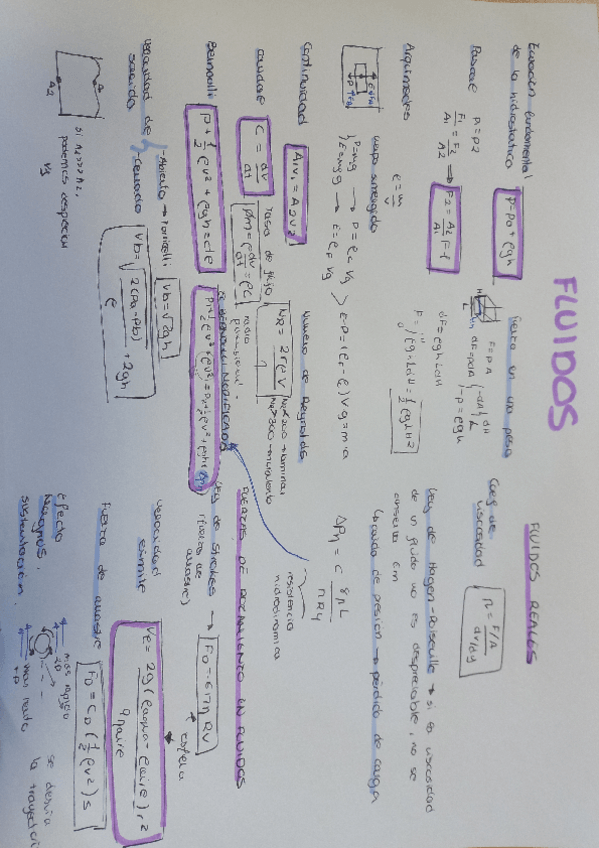 FLUIDOS
Ecuación fundamental
de la hidrostática
P=P0+ρgh
Pascal
P1=P2
F1/A1 = F2/A2 → F2 = A2/A1 F1
Arquímedes
ρ = m/V
Cuerpo sumergido
P=mg → P=ρc Vg
E=mg → E=ρf Vg
E-P=(ρf-ρc)Vg=m·a
Continuidad
A1V1=A2V2
Caudal
C = dV/dt
Tasa de flujo
Bernoulli
P+½ρv²+ρgh=cte
Velocidad de
salida
Abierto → Torricelli
Vb=√2gh
Cerrado
Vb=√(2(Pa-Pb)/ρ + 2gh)
Si A1>>>A2,
podemos despreciar
Fuerza en una presa
F=P·A
dF=ρghLdH
F=∫ρghLdH=½ρgLH²
Número de Reynolds
NR = 2rρv/η
NR<2000→laminar
NR>3000→turbulento
BERNOULLI MODIFICADO
FLUIDOS REALES
Coef de
viscosidad
η = F/A / dv/dy
Ley de Hagen-Poiseuille → si la viscosidad
de un fluido no es despreciable, no se
conserva Em
Caída de presión → pérdida de carga
ΔPh = C 8ηL/πR4
resistencia
hidrodinámica
FUERZAS DE ROZAMIENTO EN FLUIDOS
Ley de Stokes
(fuerza de
arrastre)
FD=-6πηRV
esfera
Velocidad
límite
VL= 2g(ρagua-ρaire)r²/9ηaire
Fuerza de arrastre
FD=CD(½ρv²)S
Efecto
Magnus.
Sustentación.
más rápido
-P
más lento
+P
se desvía
la trayectori